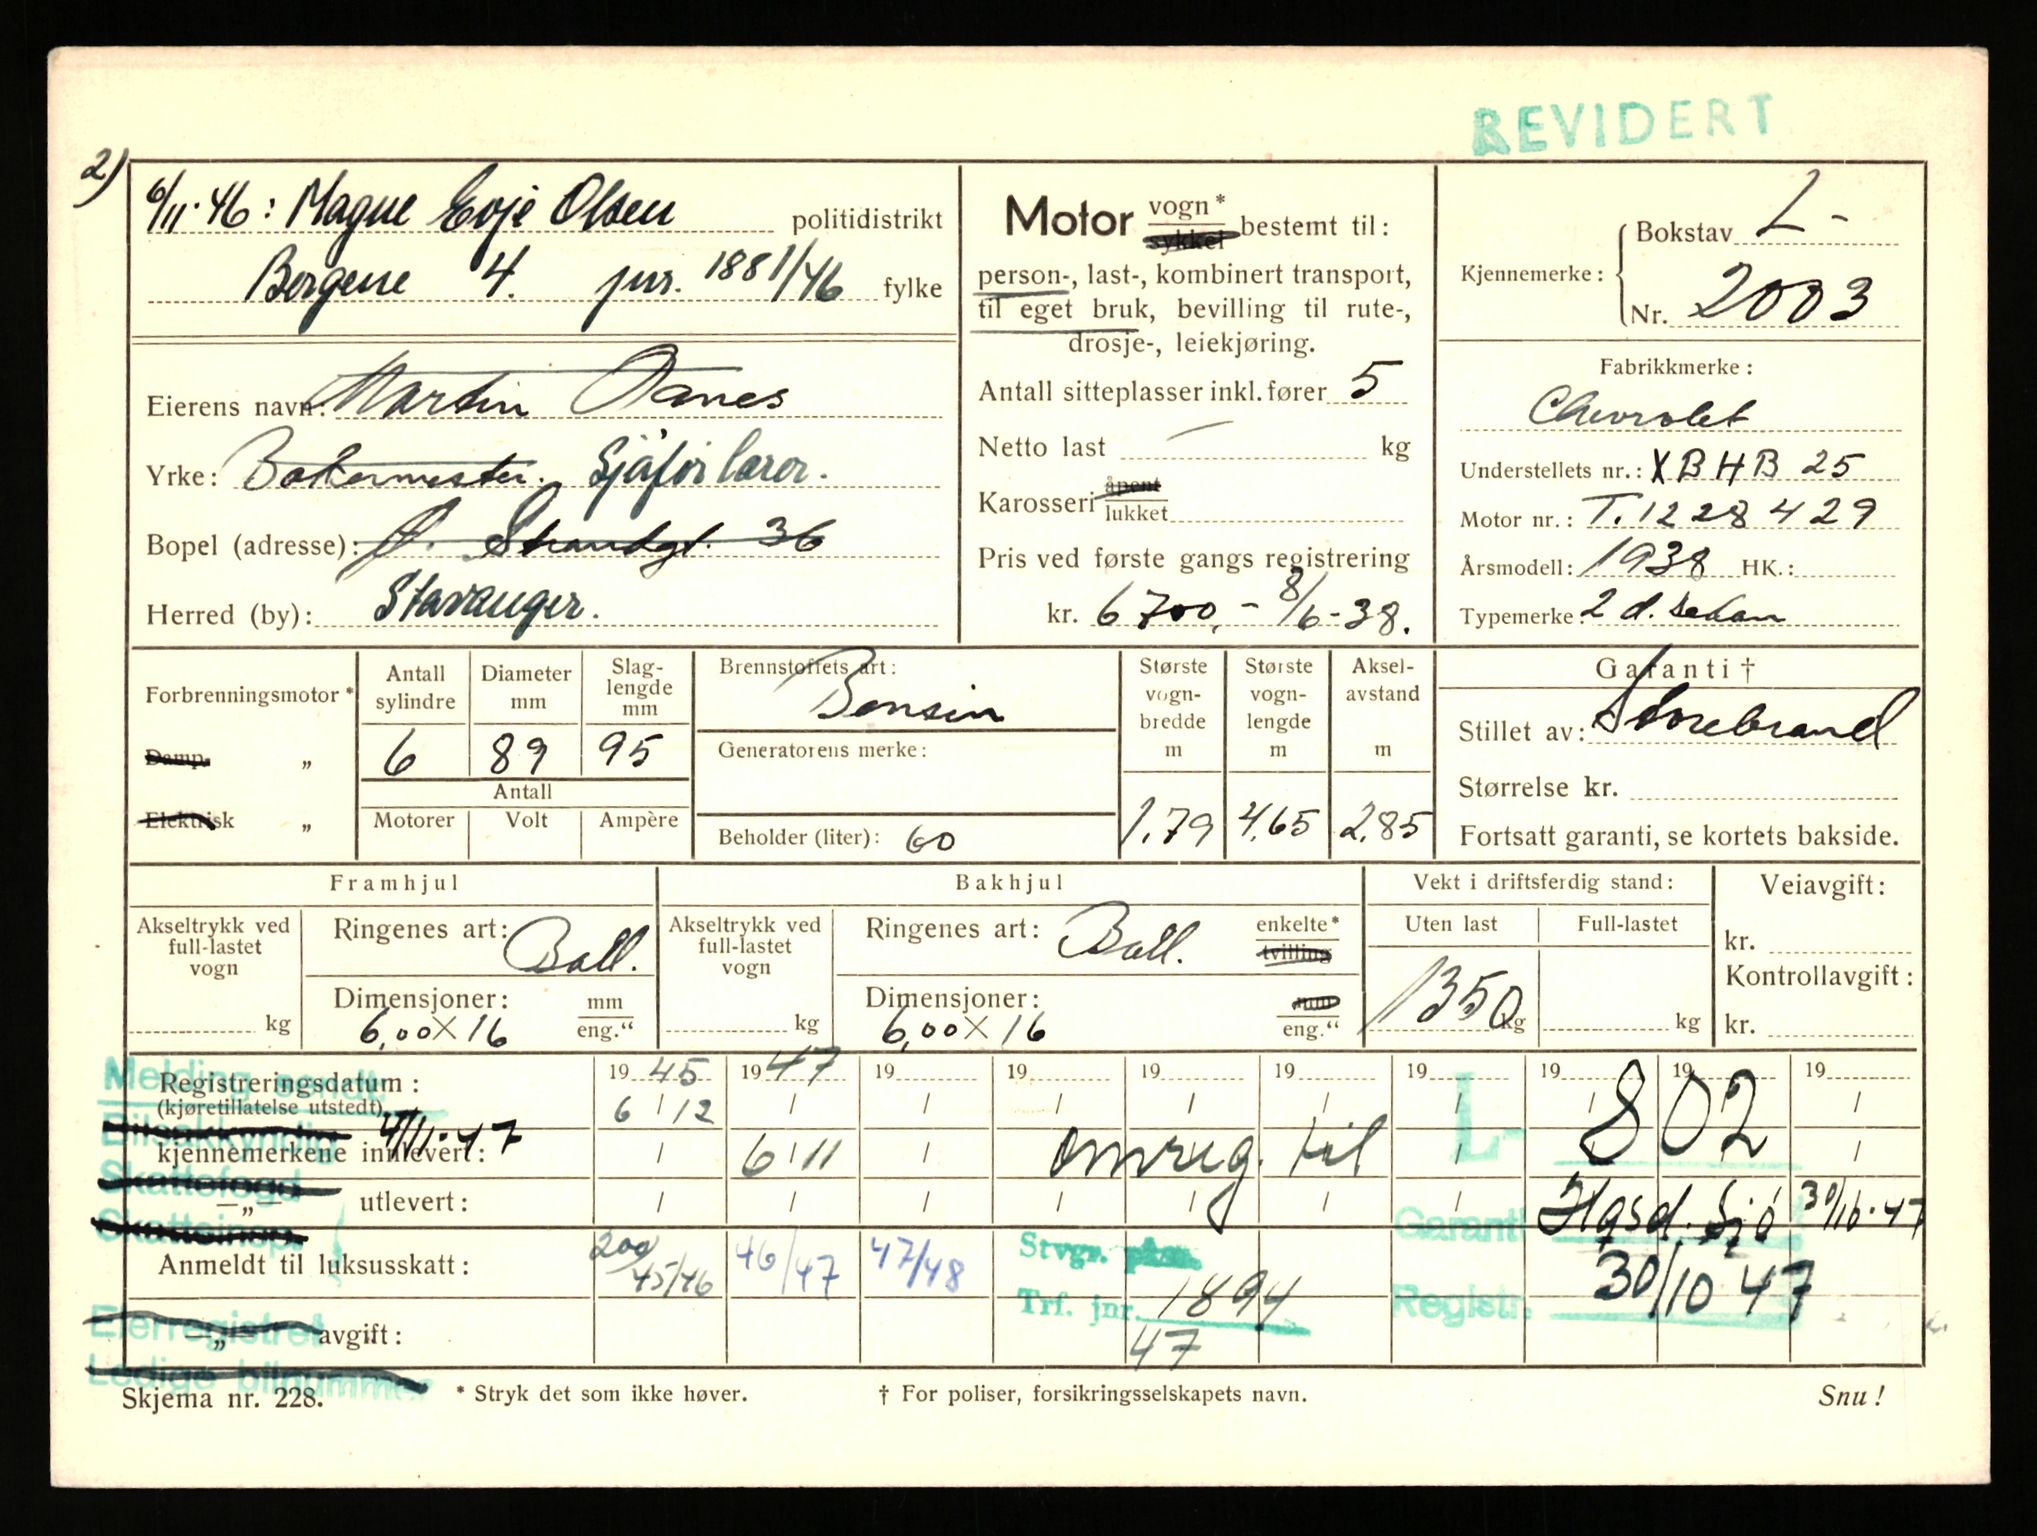 REVIDERT
2)
6/11.46: Magne Evje Olsen politidistrikt
Bergene 4. jnr. 1881/46 fylke
Eierens navn: Martin Aanes
Yrke: Bakermester. Sjåførlærer.
Bopel (adresse): Ø. Strandgt. 36
Herred (by): Stavanger.
Motor vogn* sykkel bestemt til:
person-, last-, kombinert transport,
til eget bruk, bevilling til rute-,
drosje-, leiekjøring.
Antall sitteplasser inkl. fører 5
Netto last — kg
Karosseri åpent lukket
Pris ved første gangs registrering
kr. 6700,- 8/6-38.
Kjennemerke: Bokstav L-
Nr. 2003
Fabrikkmerke:
Chevrolet
Understellets nr.: XBHB 25
Motor nr.: T.1228429
Årsmodell: 1938 HK.:
Typemerke: 2 d. Sedan
Forbrenningsmotor *
Damp- „
Elektrisk „
Antall sylindre
6
Diameter mm
89
Slag-lengde mm
95
Antall
Motorer Volt Ampère
Brennstoffets art:
Bensin
Generatorens merke:
Beholder (liter): 60
Største vogn-bredde m
1.79
Største vogn-lengde m
4,65
Aksel-avstand m
2,85
Garanti †
Stillet av: Storebrand
Størrelse kr.
Fortsatt garanti, se kortets bakside.
Framhjul
Akseltrykk ved full-lastet vogn
kg
Ringenes art: Ball.
Dimensjoner: mm
6,00 x 16 eng."
Bakhjul
Akseltrykk ved full-lastet vogn
kg
Ringenes art: Ball. enkelte* tvilling
Dimensjoner: mm
6,00 x 16 eng."
Vekt i driftsferdig stand:
Uten last Full-lastet
1350 kg kg
Veiavgift:
kr.
Kontrollavgift:
kr.
Melding sendt
Registreringsdatum: 19 45 19 47 19 19 19 19 19 19 19 19
(kjøretillatelse utstedt) 6 / 12
Bilsakkyndig 4/11.47
kjennemerkene innlevert: 6 / 11 omreg. til L- 802
Skattefogd
—„— utlevert:
Garanti Hgsd. Sjø 30/10.47
Skatteinsp.
Anmeldt til luksusskatt: 200 45/46 46/47 47/48
Stvgr. pkm.
Trf. jnr. 1894
47
Registr. 30/10 47
Eierregistret
„ avgift:
Ledige bilnummer
Skjema nr. 228. * Stryk det som ikke høver. † For poliser, forsikringsselskapets navn. Snu!